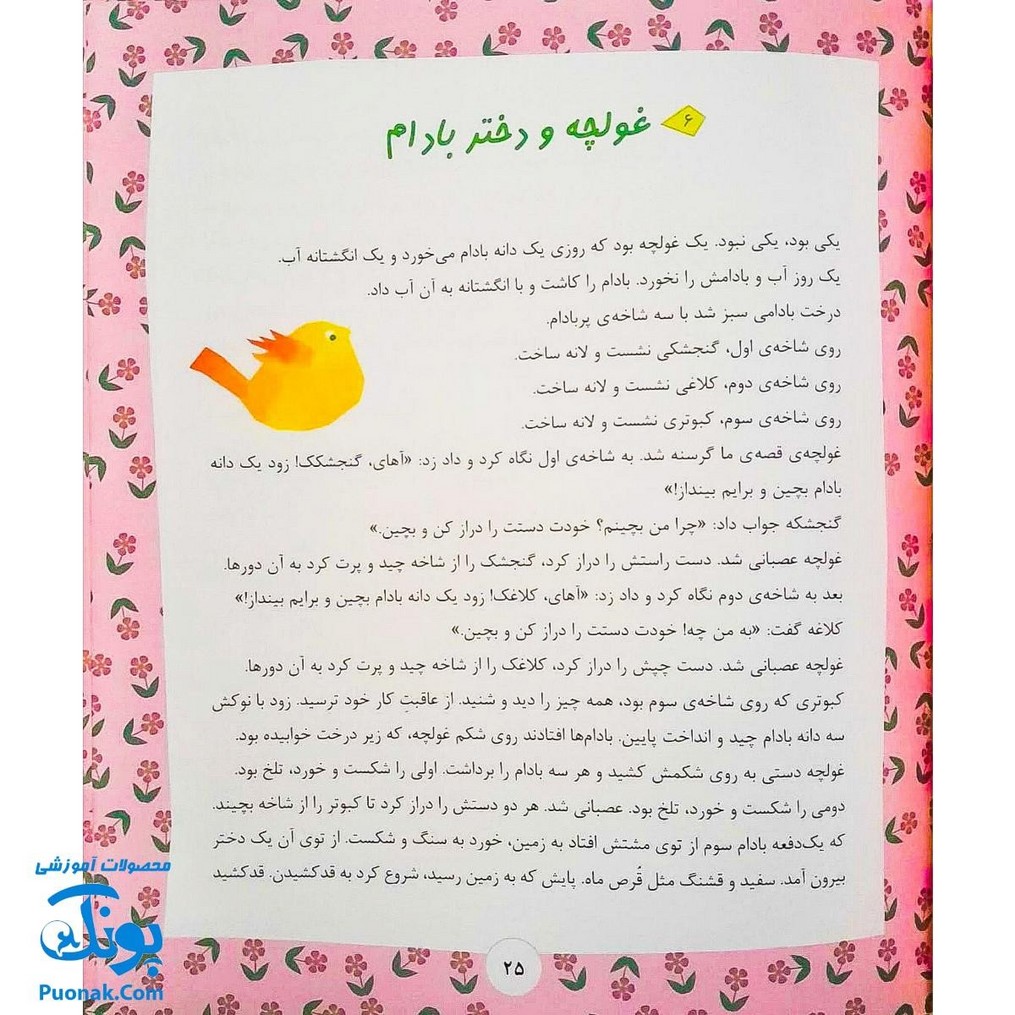 ۶
غولچه و دختر بادام
یکی بود، یکی نبود. یک غولچه بود که روزی یک دانه بادام می‌خورد و یک انگشتانه آب.
یک روز آب و بادامش را نخورد. بادام را کاشت و با انگشتانه به آن آب داد.
درخت بادامی سبز شد با سه شاخه‌ی پربادام.
روی شاخه‌ی اول، گنجشکی نشست و لانه ساخت.
روی شاخه‌ی دوم، کلاغی نشست و لانه ساخت.
روی شاخه‌ی سوم، کبوتری نشست و لانه ساخت.
غولچه‌ی قصه‌ی ما گرسنه شد. به شاخه‌ی اول نگاه کرد و داد زد: «آهای، گنجشکک! زود یک دانه
بادام بچین و برایم بینداز!»
گنجشکه جواب داد: «چرا من بچینم؟ خودت دستت را دراز کن و بچین.»
غولچه عصبانی شد. دست راستش را دراز کرد، گنجشک را از شاخه چید و پرت کرد به آن دورها.
بعد به شاخه‌ی دوم نگاه کرد و داد زد: «آهای، کلاغک! زود یک دانه بادام بچین و برایم بینداز!»
کلاغه گفت: «به من چه! خودت دستت را دراز کن و بچین.»
غولچه عصبانی شد. دست چپش را دراز کرد، کلاغک را از شاخه چید و پرت کرد به آن دورها.
کبوتری که روی شاخه‌ی سوم بود، همه چیز را دید و شنید. از عاقبتِ کار خود ترسید. زود با نوکش
سه دانه بادام چید و انداخت پایین. بادام‌ها افتادند روی شکم غولچه، که زیر درخت خوابیده بود.
غولچه دستی به روی شکمش کشید و هر سه بادام را برداشت. اولی را شکست و خورد، تلخ بود.
دومی را شکست و خورد، تلخ بود. عصبانی شد. هر دو دستش را دراز کرد تا کبوتر را از شاخه بچیند.
که یک‌دفعه بادام سوم از توی مشتش افتاد به زمین، خورد به سنگ و شکست. از توی آن یک دختر
بیرون آمد. سفید و قشنگ مثل قُرص ماه. پایش که به زمین رسید، شروع کرد به قدکشیدن. قدکشید
۲۵
محصولات آموزشی
پونک
Puonak.Com